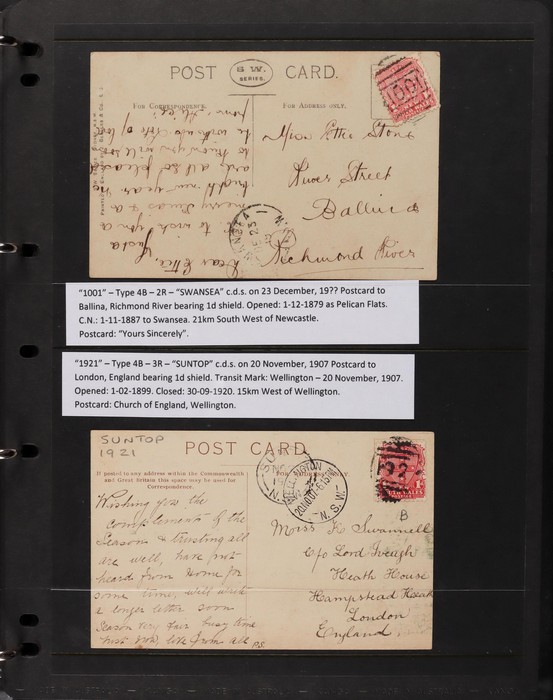 POST
S.W.
SERIES.
CARD.
1001
FOR CORRESPONDENCE.
FOR ADDRESS ONLY.
Dear Ettie,
Just a
to wish you a
merry Xmas & a
bright new year
Miss Ettie Stone
River Street
Ballina
Richmond River
SWANSEA
DE 23
"1001" – Type 4B – 2R – "SWANSEA" c.d.s. on 23 December, 19?? Postcard to
Ballina, Richmond River bearing 1d shield. Opened: 1-12-1879 as Pelican Flats.
C.N.: 1-11-1887 to Swansea. 21km South West of Newcastle.
Postcard: "Yours Sincerely".
"1921" – Type 4B – 3R – "SUNTOP" c.d.s. on 20 November, 1907 Postcard to
London, England bearing 1d shield. Transit Mark: Wellington – 20 November, 1907.
Opened: 1-02-1899. Closed: 30-09-1920. 15km West of Wellington.
Postcard: Church of England, Wellington.
SUNTOP
1921
POST CARD.
If posted to any address within the Commonwealth
and Great Britain this space may be used for
Correspondence.
WELLINGTON
N.S.W.
Wishing you the
complements of the
Season & trusting all
are well, have not
heard from Home for
some time, will write
a longer letter soon
Season very fair busy time
just now, love from all P.S.
B
Miss K Swannell
c/o Lord Iveagh
Heath House
Hampstead Heath
London
England